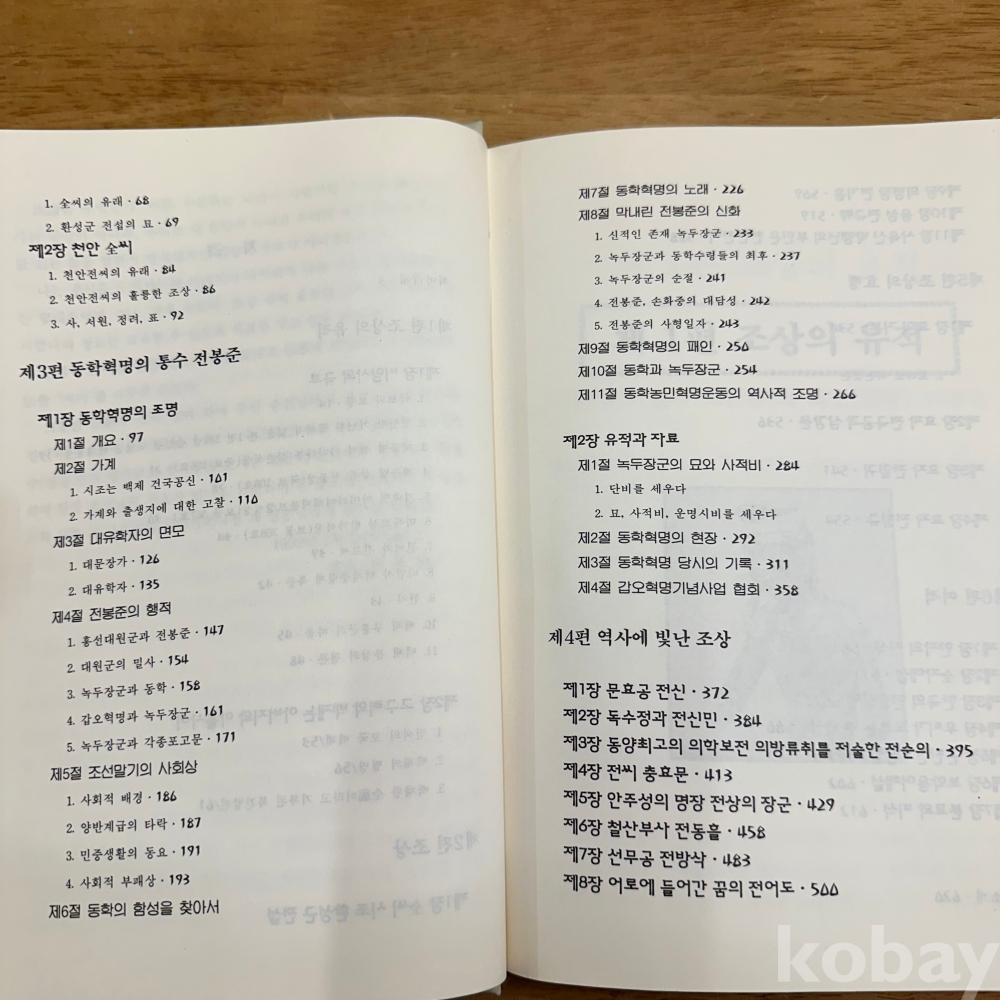 1. 全씨의 유래 · 68
2. 환성군 전섭의 묘 · 69
제2장 천안 全씨
1. 천안전씨의 유래 · 84
2. 천안전씨의 훌륭한 조상 · 86
3. 사, 서원, 정려, 표 · 92
제3편 동학혁명의 통수 전봉준
제1장 동학혁명의 조명
제1절 개요 · 97
제2절 가계
1. 시조는 백제 건국공신 · 101
2. 가계와 출생지에 대한 고찰 · 110
제3절 대유학자의 면모
1. 대문장가 · 126
2. 대유학자 · 135
제4절 전봉준의 행적
1. 흥선대원군과 전봉준 · 147
2. 대원군의 밀사 · 154
3. 녹두장군과 동학 · 158
4. 갑오혁명과 녹두장군 · 161
5. 녹두장군과 각종포고문 · 171
제5절 조선말기의 사회상
1. 사회적 배경 · 186
2. 양반계급의 타락 · 187
3. 민중생활의 동요 · 191
4. 사회적 부패상 · 193
제6절 동학의 함성을 찾아서
제7절 동학혁명의 노래 · 226
제8절 막내린 전봉준의 신화
1. 신적인 존재 녹두장군 · 233
2. 녹두장군과 동학수령들의 최후 · 237
3. 녹두장군의 순절 · 241
4. 전봉준, 손화중의 대담성 · 242
5. 전봉준의 사형일자 · 243
제9절 동학혁명의 패인 · 250
제10절 동학과 녹두장군 · 254
제11절 동학농민혁명운동의 역사적 조명 · 266
제2장 유적과 자료
제1절 녹두장군의 묘와 사적비 · 284
1. 단비를 세우다
2. 묘, 사적비, 운명시비를 세우다
제2절 동학혁명의 현장 · 292
제3절 동학혁명 당시의 기록 · 311
제4절 갑오혁명기념사업 협회 · 358
제4편 역사에 빛난 조상
제1장 문효공 전신 · 372
제2장 독수정과 전신민 · 384
제3장 동양최고의 의학보전 의방류취를 저술한 전순의 · 395
제4장 전씨 충효문 · 413
제5장 안주성의 명장 전상의 장군 · 429
제6장 철산부사 전동흘 · 458
제7장 선무공 전방삭 · 483
제8장 어로에 들어간 꿈의 전어도 · 500
kobay